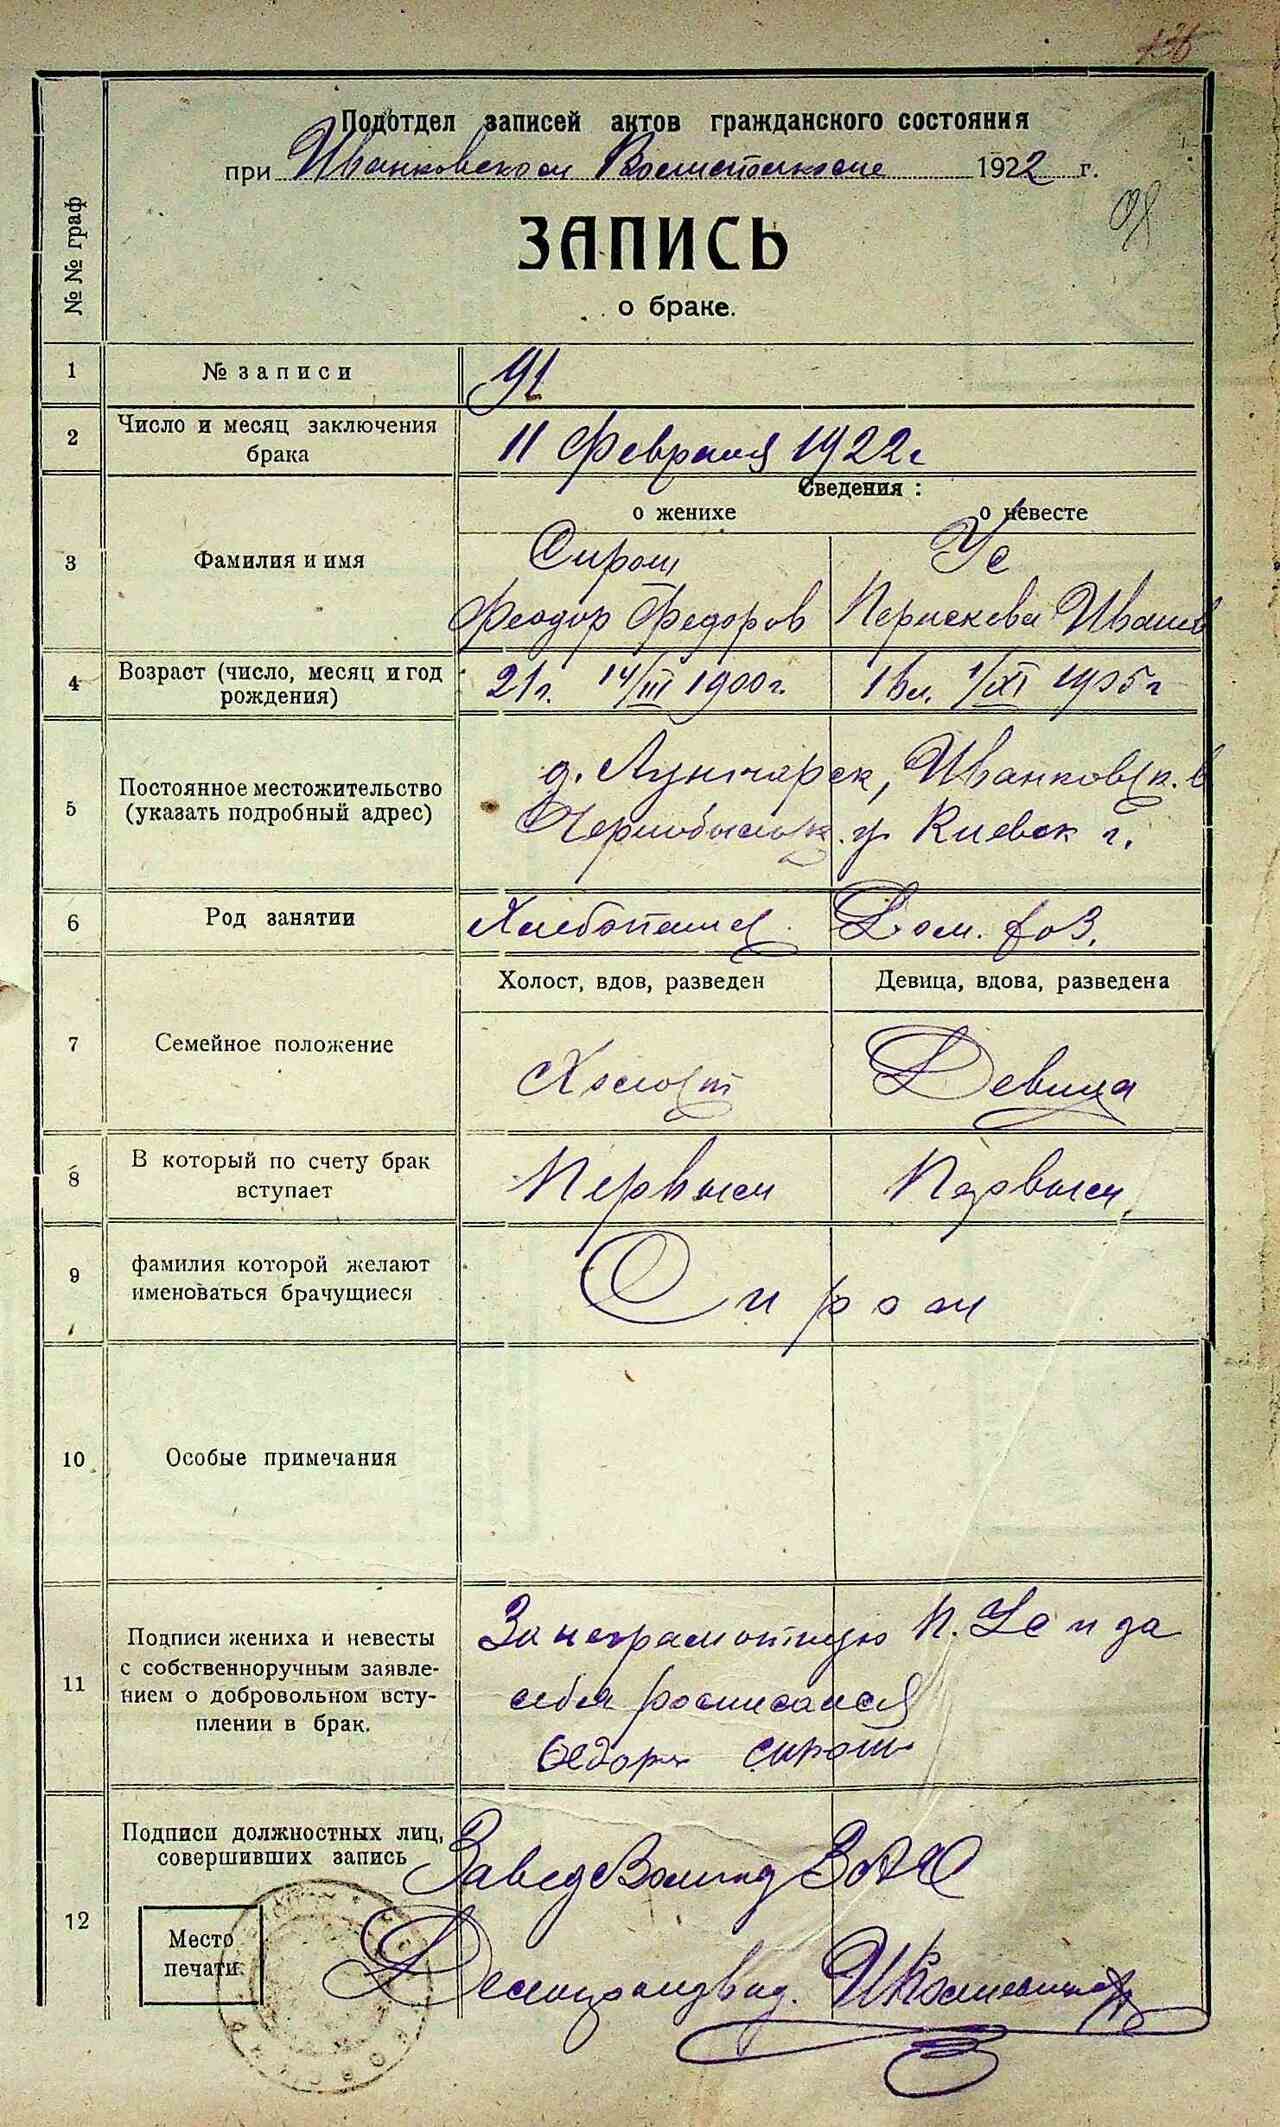 136
Подотдел записей актов гражданского состояния
при Иванковском Волисполкоме 1922 г.
98
ЗАПИСЬ
о браке.
№ № граф
1 № записи 91
2 Число и месяц заключения брака 11 Февраля 1922 г
Сведения :
о женихе о невесте
3 Фамилия и имя
Сирош Ус
Феодор Федоров Параскева Иванов
4 Возраст (число, месяц и год рождения) 21 г. 14/III 1900 г. 16 л. 1/XI 1905 г
5 Постоянное местожительство (указать подробный адрес)
Иванковск. в
Чернобыльск. у Киевск г.
6 Род занятии Хлебопашец Дом. хоз.
Холост, вдов, разведен Девица, вдова, разведена
7 Семейное положение Холост Девица
8 В который по счету брак вступает Первый Первый
9 фамилия которой желают именоваться брачущиеся Сирош
10 Особые примечания
11 Подписи жениха и невесты с собственноручным заявлением о добровольном вступлении в брак.
За неграмотную П. Ус и за
себя росписался
Федор
12 Подписи должностных лиц, совершивших запись
Завед ЗАГС
Делопроизвод.
Место печати.